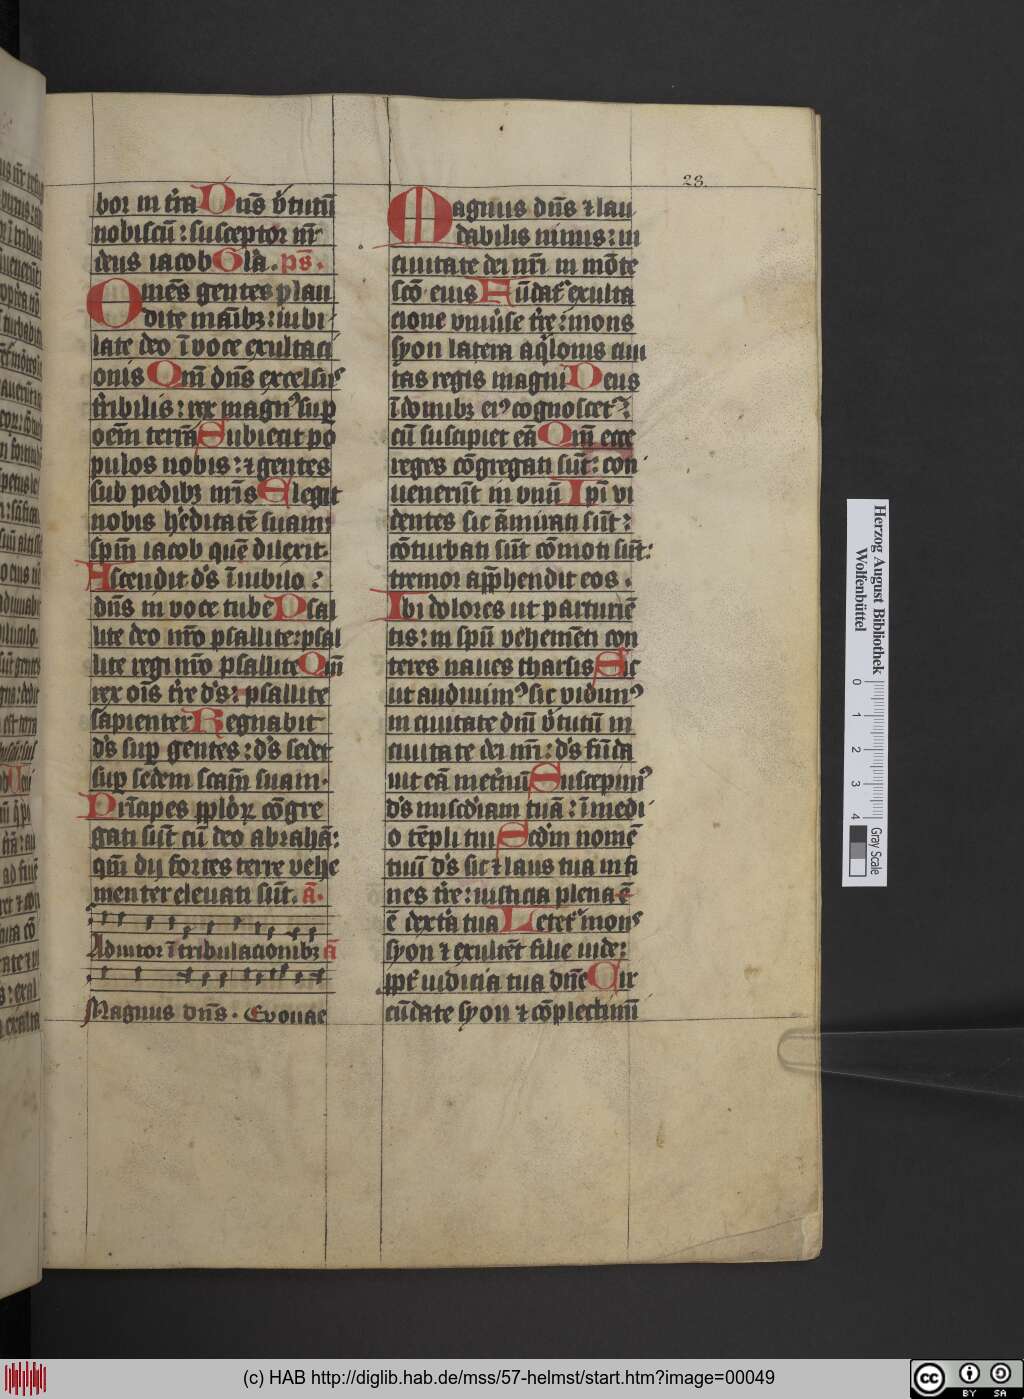 28.
bor in t'ra Dn̄s v'tutū
nobiscū: susceptor nr̄
deus iacob Gl'a. ps̄.
Omēs gentes plau
dite manibꝫ: iubi
late deo ī voce exultaci
onis Qm̄ dn̄s excelsꝰ
t'ribilis: rex magnꝰ sup
oēm terrā Subiecit po
pulos nobis: ⁊ gentes
sub pedibꝫ nr̄is Elegit
nobis h'editatē suam:
spēm iacob quē dilexit.
Ascendit d's ī iubilo:
dn̄s in voce tube Psal
lite deo nr̄o psallite: psal
lite regi nr̄o psallite Qm̄
rex oīs t're d's: psallite
sapienter Regnabit
d's sup gentes: d's sedet
sup sedem scām suam.
Prīcipes pplo'ꝝ cōgre
gati sūt cū deo abrahā:
qm̄ dij fortes terre vehe
menter eleuati sūt. ā.
Adiutor ī tribulacionibꝫ ā
Magnus dn̄s. Evouae
Magnus dn̄s ⁊ lau
dabilis nimis: in
ciuitate dei nr̄i in mōte
scō eius Fūdat' exulta
cione vniu'se t're: mons
syon latera aq'lonis ciui
tas regis magni Deus
ī domibꝫ eiꝰ cognoscet':
cū suscipiet eā Qm̄ ecce
reges cōgregati sūt: con
uenerūt in vnū Ipi vi
dentes sic āmirati sūt:
cōturbati sūt cōmoti sūt:
tremor apphendit eos.
Ibi dolores ut parturiē
tis: in spū vehemēti con
teres naues tharsis Sic
ut audiuimꝰ sic vidimꝰ
in ciuitate dn̄i v'tutū in
ciuitate dei nr̄i: d's fūda
uit eā met'nū Suscepimꝰ
d's mis'cdiam tuā: ī medi
o tēpli tui Scd'm nomē
tuū d's sic ⁊ laus tua in fi
nes t're: iusticia plena ē
ē dext'a tua Letet' monˢ
syon ⁊ exultēt filie iude:
ppt' iudicia tua dn̄e Cir
cūdate syon ⁊ cōplectimī
Herzog August Bibliothek
Wolfenbüttel
0 1 2 3 4
Gray Scale
(c) HAB http://diglib.hab.de/mss/57-helmst/start.htm?image=00049
cc BY SA